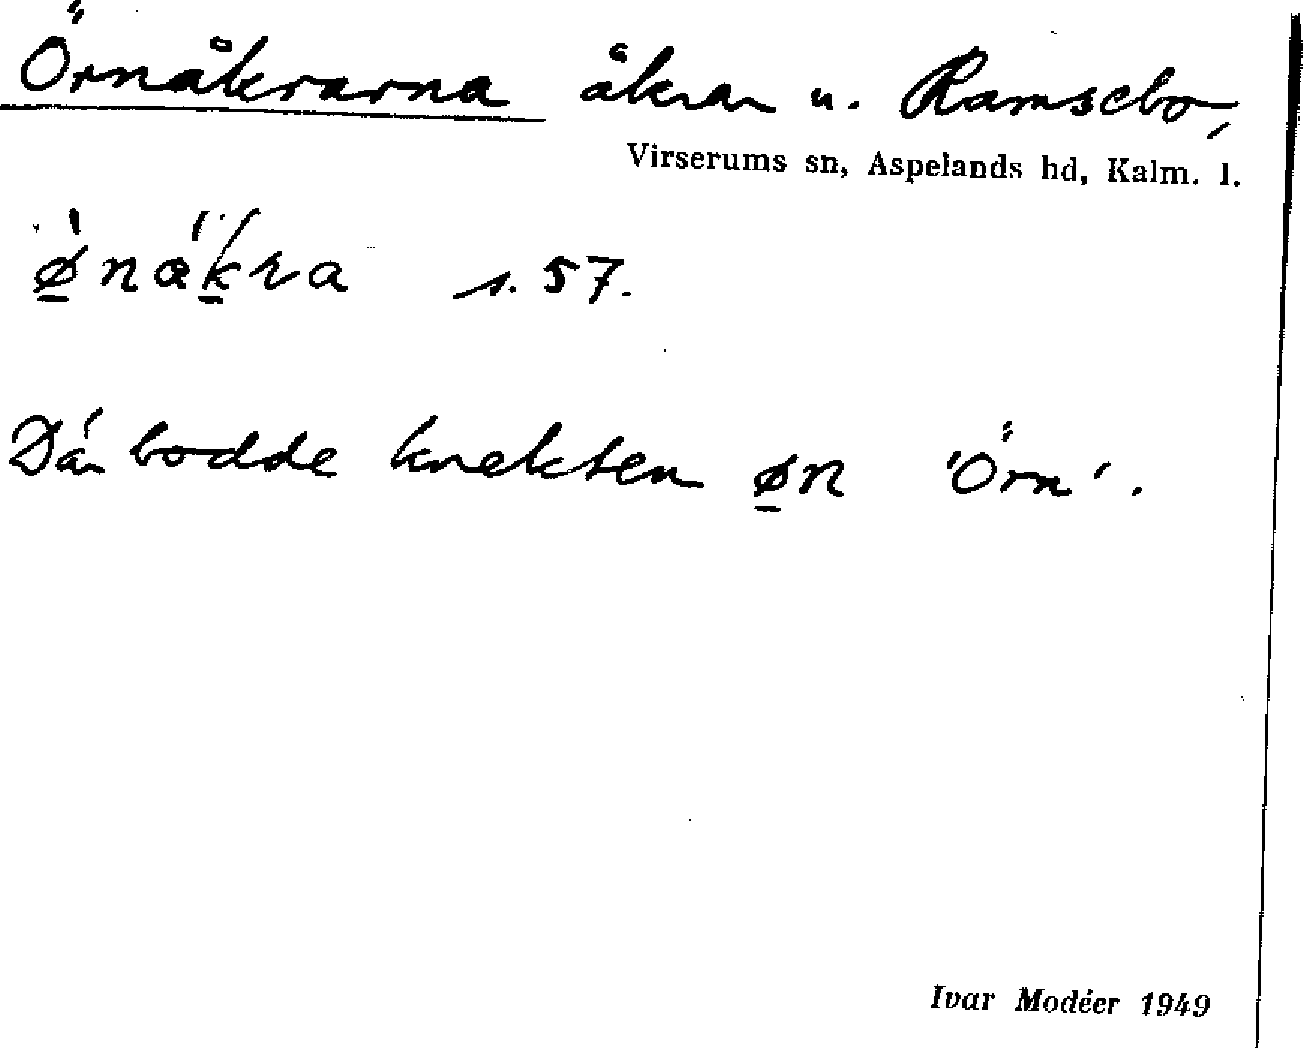 Örnåkrarna åkrar u. Ramsebo,
Virserums sn, Aspelands hd, Kalm. l.
ø̱̀nàḵra s. 57.
Där bodde knekten ø̱n 'Örn'.
Ivar Modéer 1949